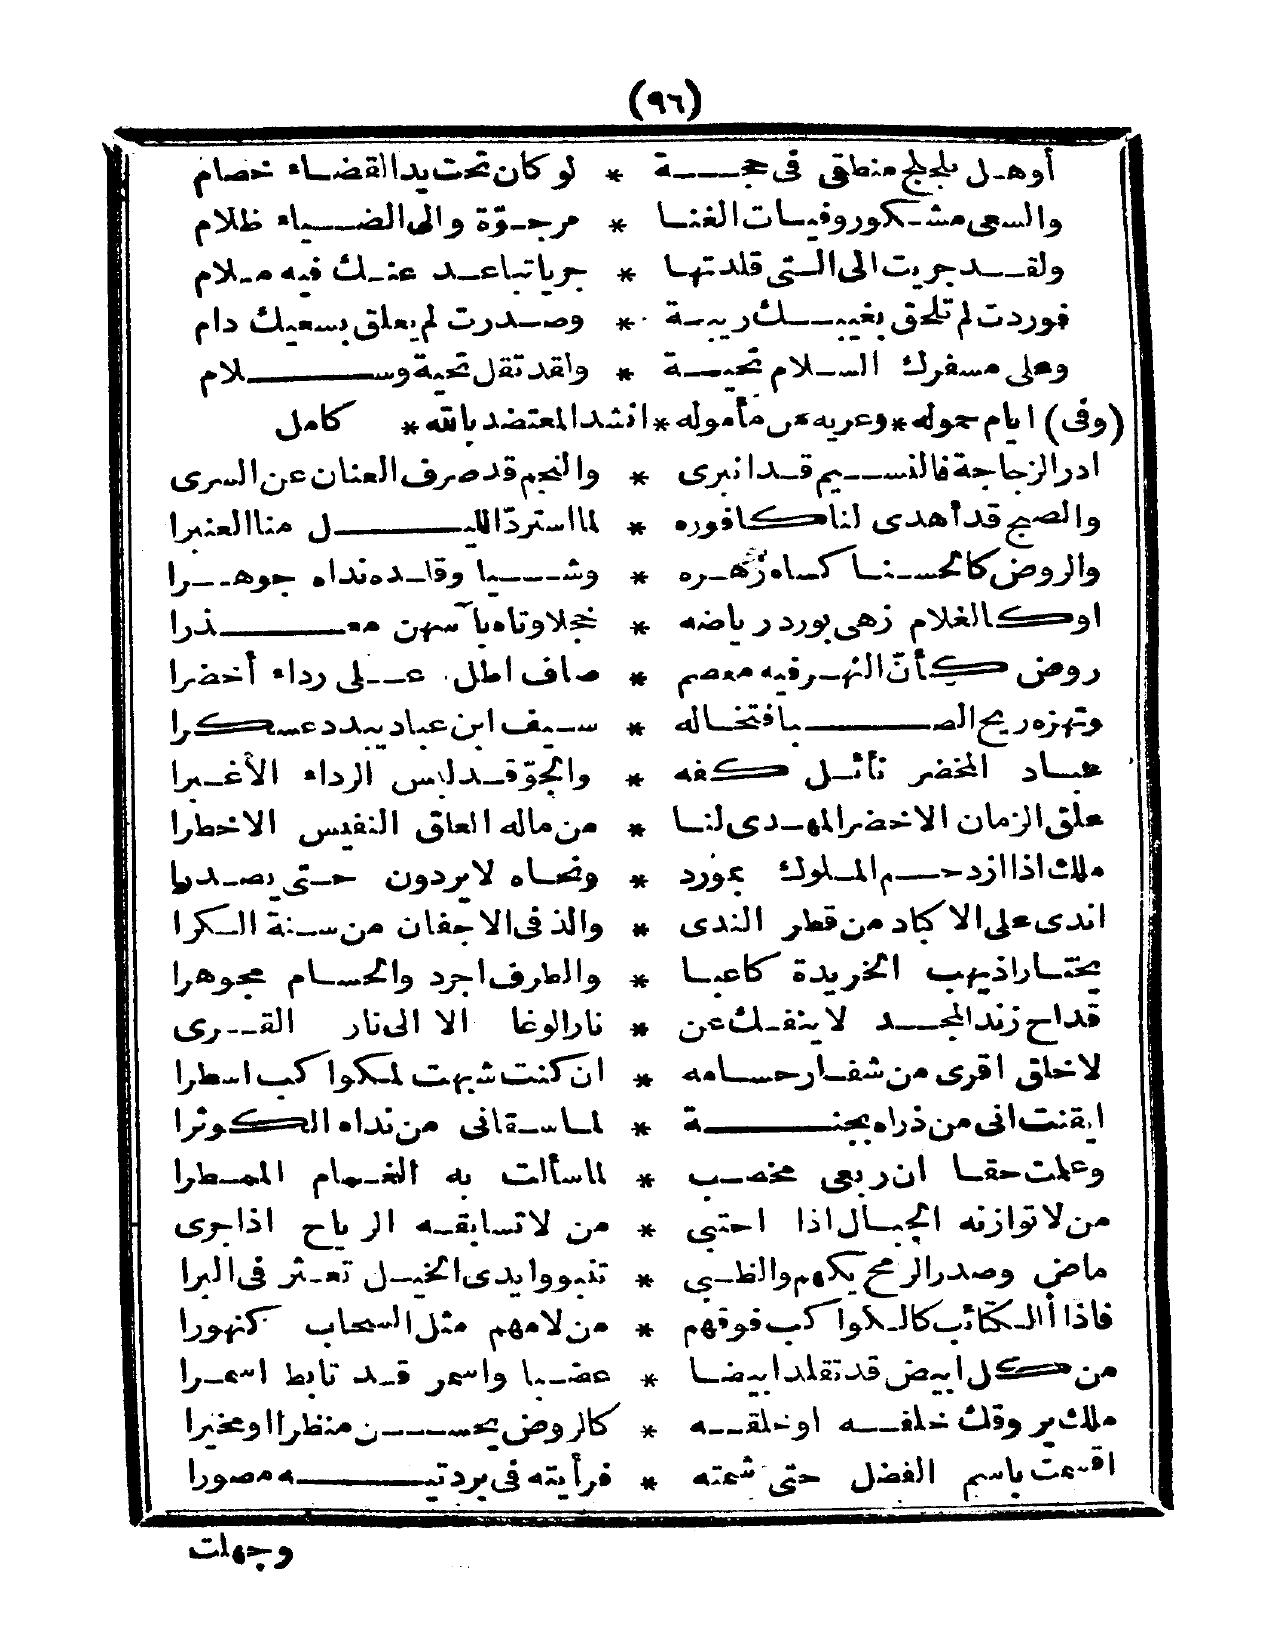 (٩٦)
أوهل يلجلج منطقى فى حجة * لو كان تحت يد القضاء خصام
والسعى مشكور وفيات الغنا * مرجوة والى الضياء ظلام
ولقد جريت الى التى قلدتها * جريا تباعد عنك فيه ملام
فوردت لم تلحق بغيبك ريبة * وصدرت لم يعلق بسعيك دام
وعلى مسفرك السلام تحية * ولقد تقل تحية وسلام
(وفى) ايام حموله * وعريه من مأموله * انشد المعتضد بالله * كامل
ادر الزجاجة فالنسيم قد انبرى * والنجم قد صرف العنان عن السرى
والصبح قد أهدى لنا كافوره * لما استرد الليل منا العنبرا
والروض كالحسنا كساه زهره * وشيا وقلده نداه جوهرا
او كالغلام زهى بورد رياضه * خجلا وتاه بآسهن معذرا
روض كأنّ النهر فيه معصم * صاف اطل على رداء أخضرا
وتهزه ريح الصبا فتخاله * سيف ابن عباد يبدد عسكرا
عباد المخضر نأئل كفه * والجوّ قد لبس الرداء الأغبرا
علق الزمان الاخضر المهدى لنا * من ماله العلق النفيس الاخطرا
ملك اذا ازدحم الملوك بمورد * ونحاه لا يردون حتى يصدرا
اندى على الاكباد من قطر الندى * والذ فى الاجفان من سنة الكرا
يختار اذ يهب الخريدة كاعبا * والطرف اجرد والحسام مجوهرا
قداح زند المجد لا ينفك عن * نار الوغا الا الى نار القرى
لا خلق اقرى من شفار حسامه * ان كنت شبهت لمكواكب اسطرا
ايقنت انى من ذراه بجنة * لما سقانى من نداه الكوثرا
وعلمت حقا ان ربعى مخصب * لما سألت به الغمام الممطرا
من لا توازنه الجبال اذا احتبى * من لا تسابقه الرياح اذا جرى
ماض وصدر الرمح يكهم والظبى * تنبو وايدى الخيل تعثر فى البرا
فاذا ألكتائب كالكواكب فوقهم * من لامهم مثل السحاب كنهورا
من كل ابيض قد تقلد ابيضا * عضبا واسمر قد تابط اسمرا
ملك يروقك خلفه او خلقه * كالروض يحسن منظرا او مخبرا
اقسمت باسم الفضل حتى شمته * فرأيته فى بردتيه مصورا
وجهلت